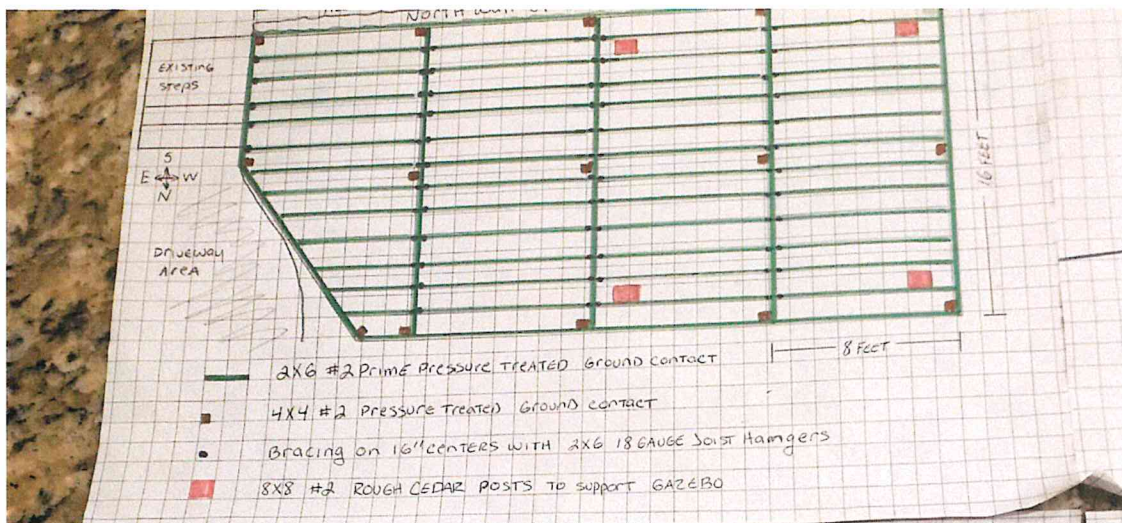 North Wall of
Existing
Steps
S
E W
N
Driveway
Area
16 Feet
8 Feet
2x6 #2 Prime Pressure Treated Ground Contact
4x4 #2 Pressure Treated Ground Contact
Bracing on 16" centers with 2x6 18 Gauge Joist Hamgers
8x8 #2 Rough Cedar Posts to support Gazebo